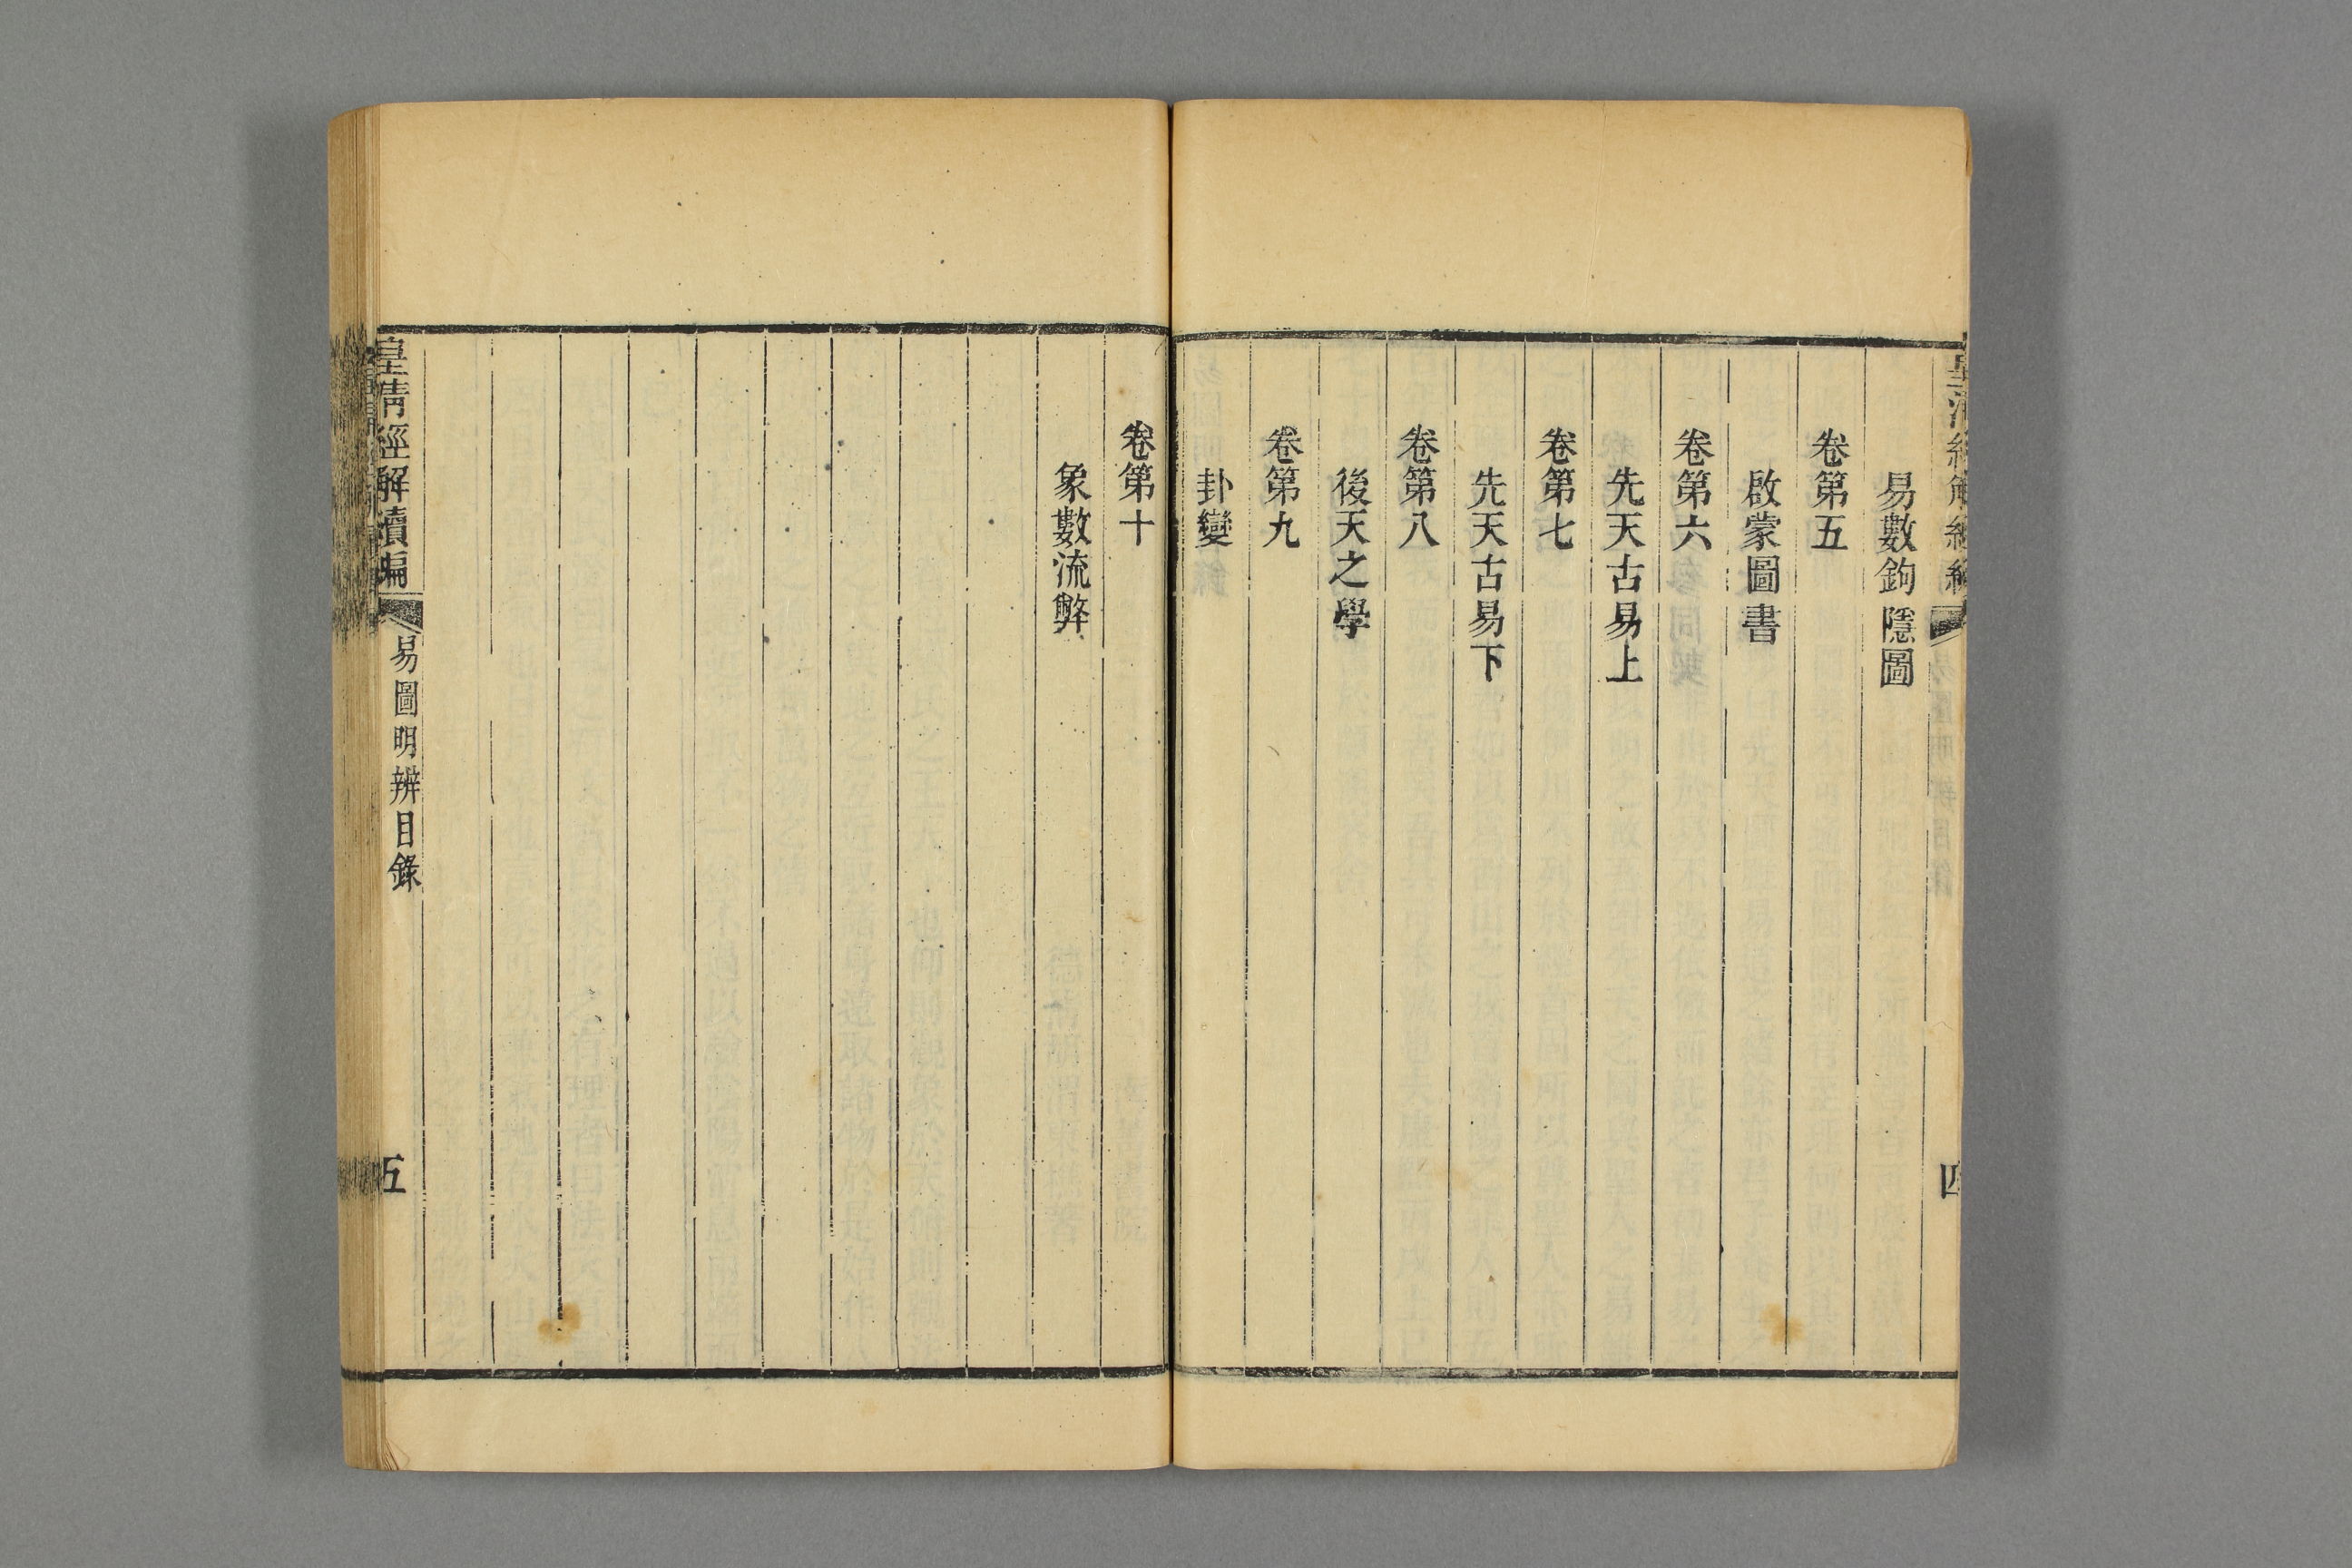 易數鉤隱圖
卷第五
啟蒙圖書
卷第六
先天古易上
卷第七
先天古易下
卷第八
後天之學
卷第九
卦變
卷第十
象數流弊
皇清經解續編
易圖明辨目錄
五